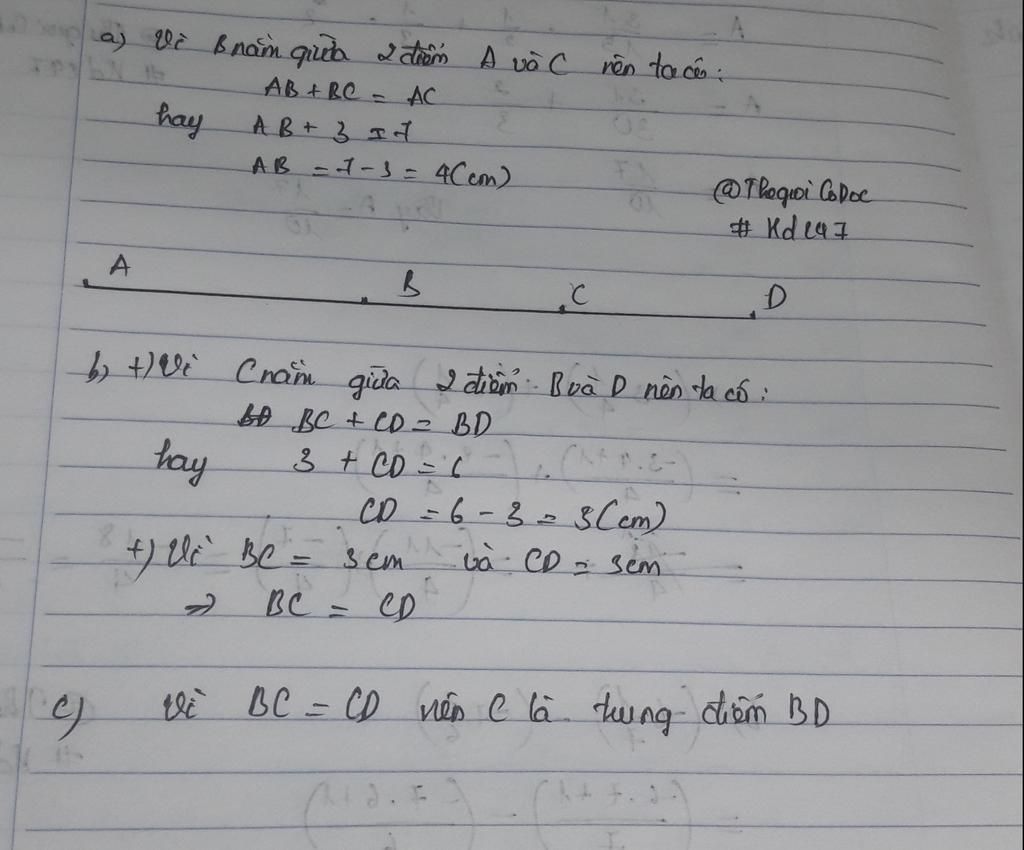 a) Vì B nằm giữa 2 điểm A và C nên ta có:
AB + BC = AC
hay AB + 3 = 7
AB = 7 - 3 = 4(cm)
@ThegioiCoDoc
# Kd197
A B C D
b) +) Vì C nằm giữa 2 điểm B và D nên ta có:
BC + CD = BD
hay 3 + CD = 6
CD = 6 - 3 = 3(cm)
+) Vì BC = 3cm và CD = 3cm
=> BC = CD
c) Vì BC = CD nên C là trung điểm BD